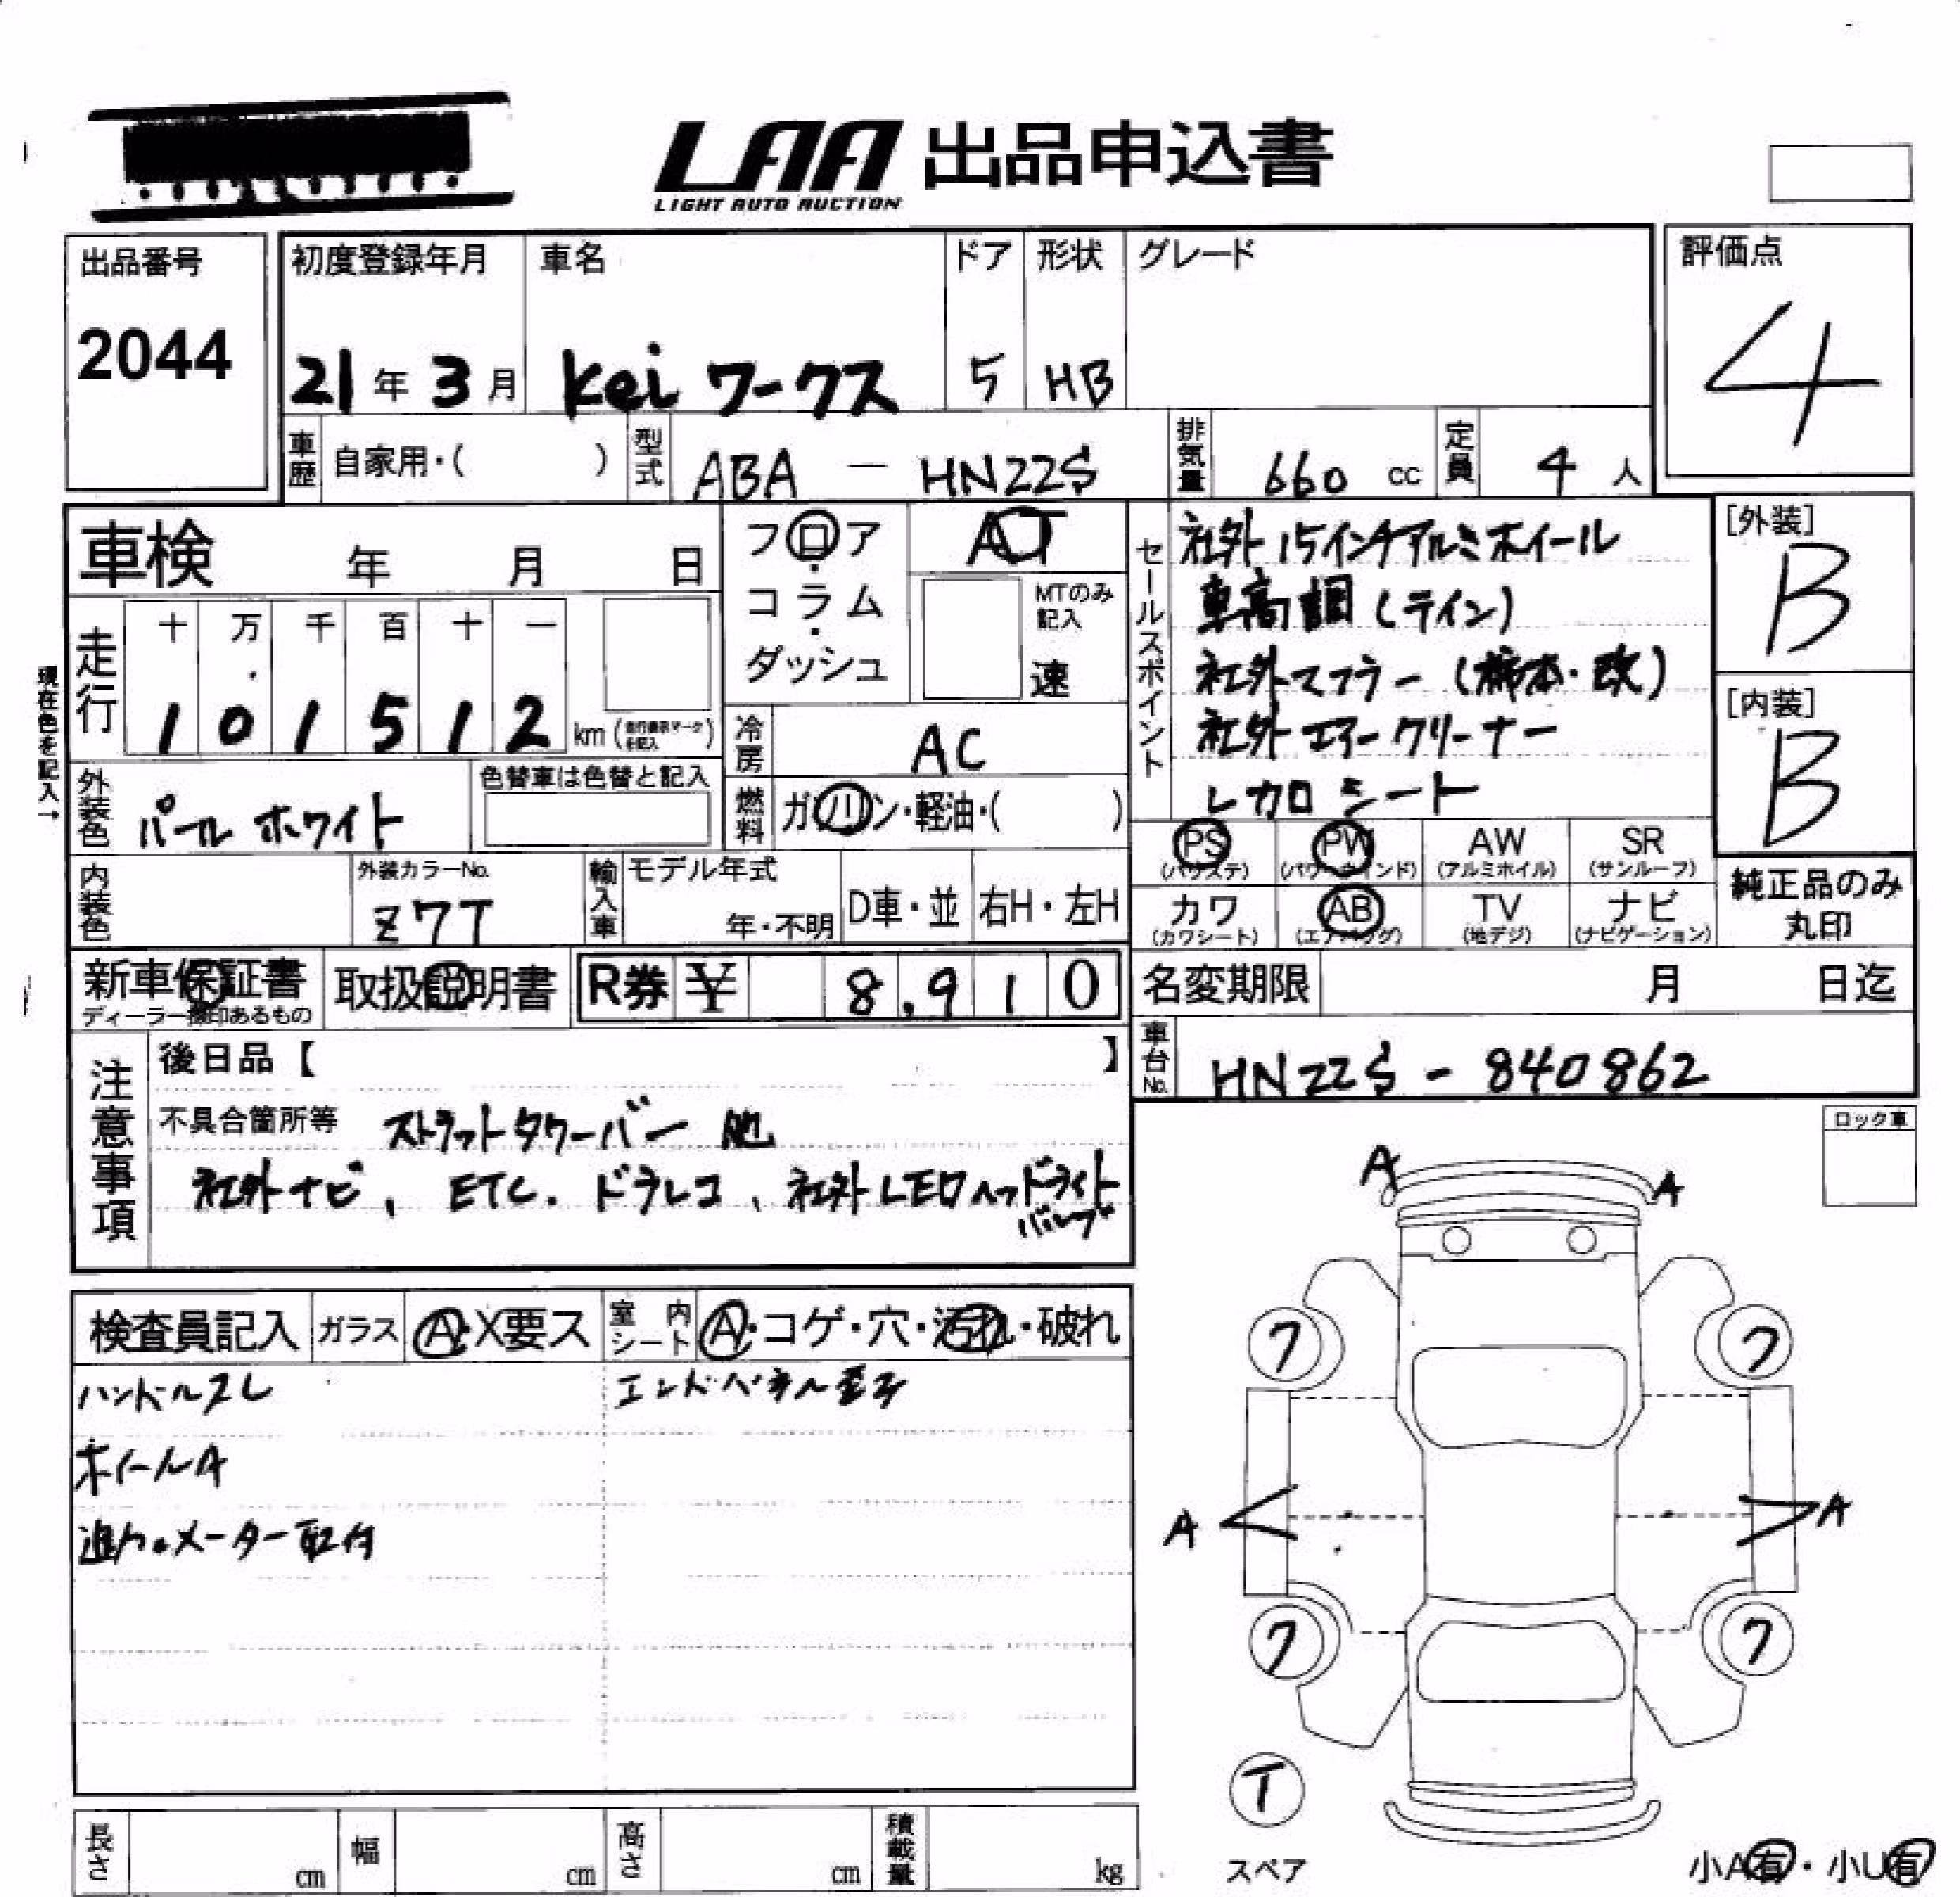 LAA 出品申込書
LIGHT AUTO AUCTION
出品番号
2044
初度登録年月
21年3月
車名
Kei ワークス
ドア
5
形状
HB
グレード
評価点
4
車歴 自家用・( )
型式 ABA - HN22S
排気量 660 cc
定員 4人
車検 年 月 日
フロア・コラム・ダッシュ
AT
MTのみ記入
速
走行
十 万 千 百 十 一
1 0 1 5 1 2 km
現在色を記入→
冷房 AC
燃料 ガソリン・軽油・( )
外装色 パールホワイト
色替車は色替と記入
内装色
外装カラーNo.
Z7T
輸入車
モデル年式
年・不明
D車・並
右H・左H
セールスポイント
社外15インチアルミホイール
車高調(テイン)
社外マフラー(柿本・改)
社外エアークリーナー
レカロシート
[外装]
B
[内装]
B
PS (パワステ)
PW (パワーウインド)
AW (アルミホイル)
SR (サンルーフ)
カワ (カワシート)
AB (エアバッグ)
TV (地デジ)
ナビ (ナビゲーション)
純正品のみ丸印
新車保証書
ディーラー捺印あるもの
取扱説明書
R券 ¥ 8,910
名変期限 月 日迄
車台No. HN22S - 840862
注意事項
後日品【 】
不具合箇所等 ストラットタワーバー 他
社外ナビ、ETC.ドラレコ、社外LEDヘッドライト
バルブ
ロック車
検査員記入
ガラス A・X要ス
室内シート A・コゲ・穴・汚れ・破れ
ハンドルスレ
エンドパネル歪み
ホイールA
追加メーター取付
A
A
フ
フ
A
A
フ
フ
T
スペア
小A有・小U有
長さ cm
幅 cm
高さ cm
積載量 kg